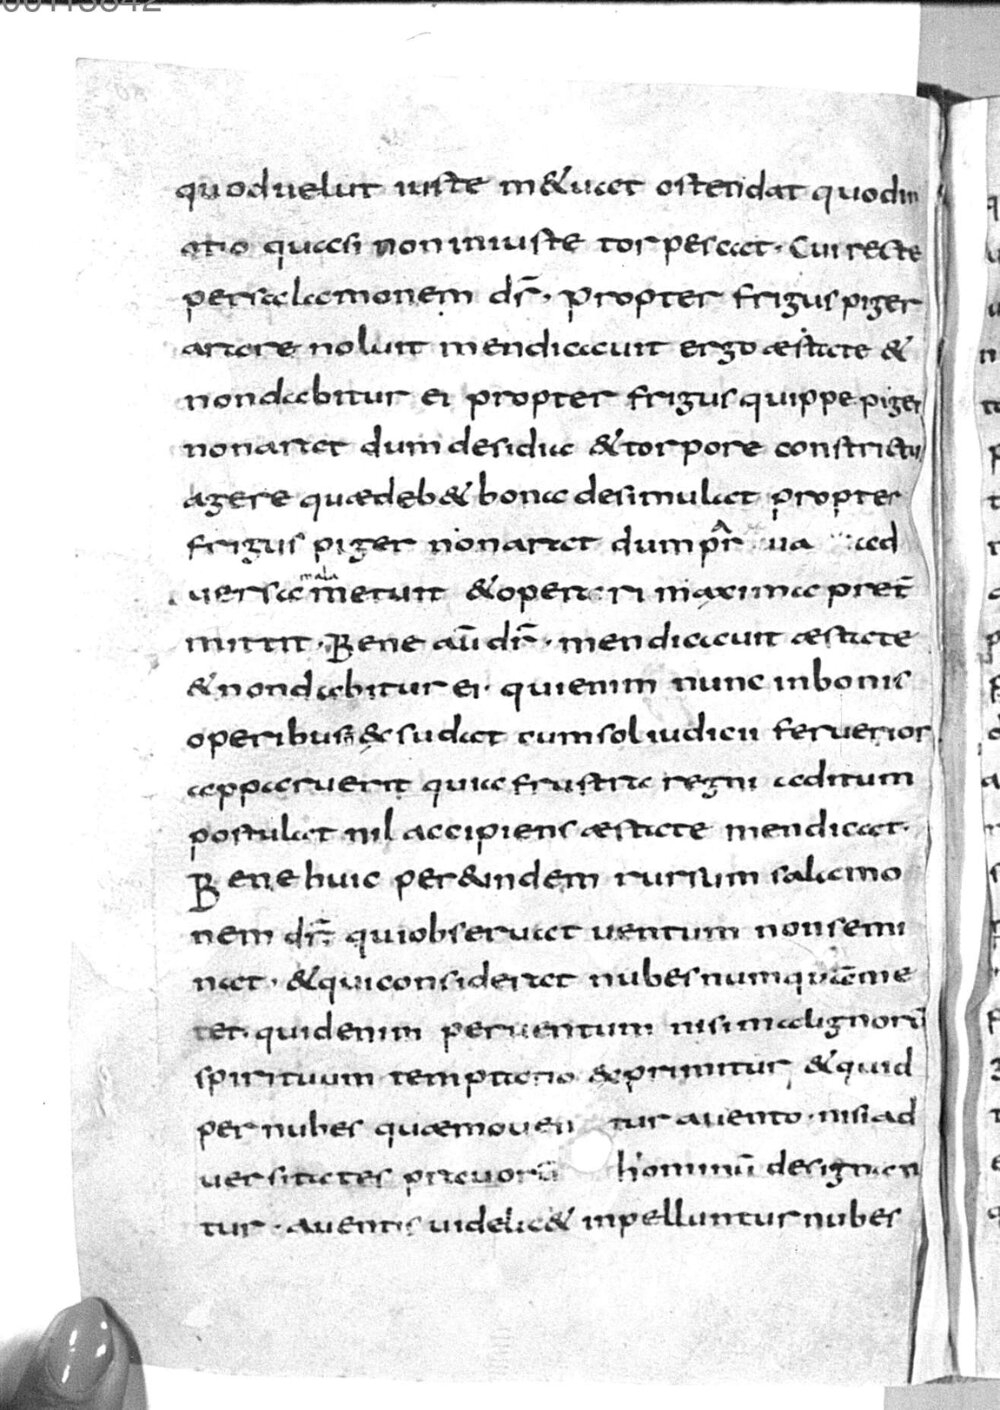 quoduelut iuste m&uat ostendat quodin
atio quasi noniniuste torpescat. Cui recte
persalamonem dr̄. propter friguspiger
arare noluit mendicauit ergo æstate &
nondabitur ei propter frigusquippe piger
nonarat dum desidiae &torpore constrictus
agere quædeb& bona desimulat propter
frigus piger nonarat dum ad
uersa mala metuit &operari maxima pret̄
mittit. Bene aū dr̄. mendicauit æstate
&nondabitur ei. quienim nunc inbonis
operibus & sudat cumsol iudicii feruerior
apparuerit quia frustra regni aditum
postulat nil accipiens æstate mendicat.
Bene huic per&undem rursum salamo
nem dr̄. quiobseruat uentum nonsemi
nat. &quiconsiderat nubes numquā me
tet. quidenim peruentum nisi malignorū
spirituum temptatio exprimitur, &quid
per nubes quæmouentur auento. nisi ad
uersitates prauorū hominū designan
tur. auentis uidelic& inpelluntur nubes